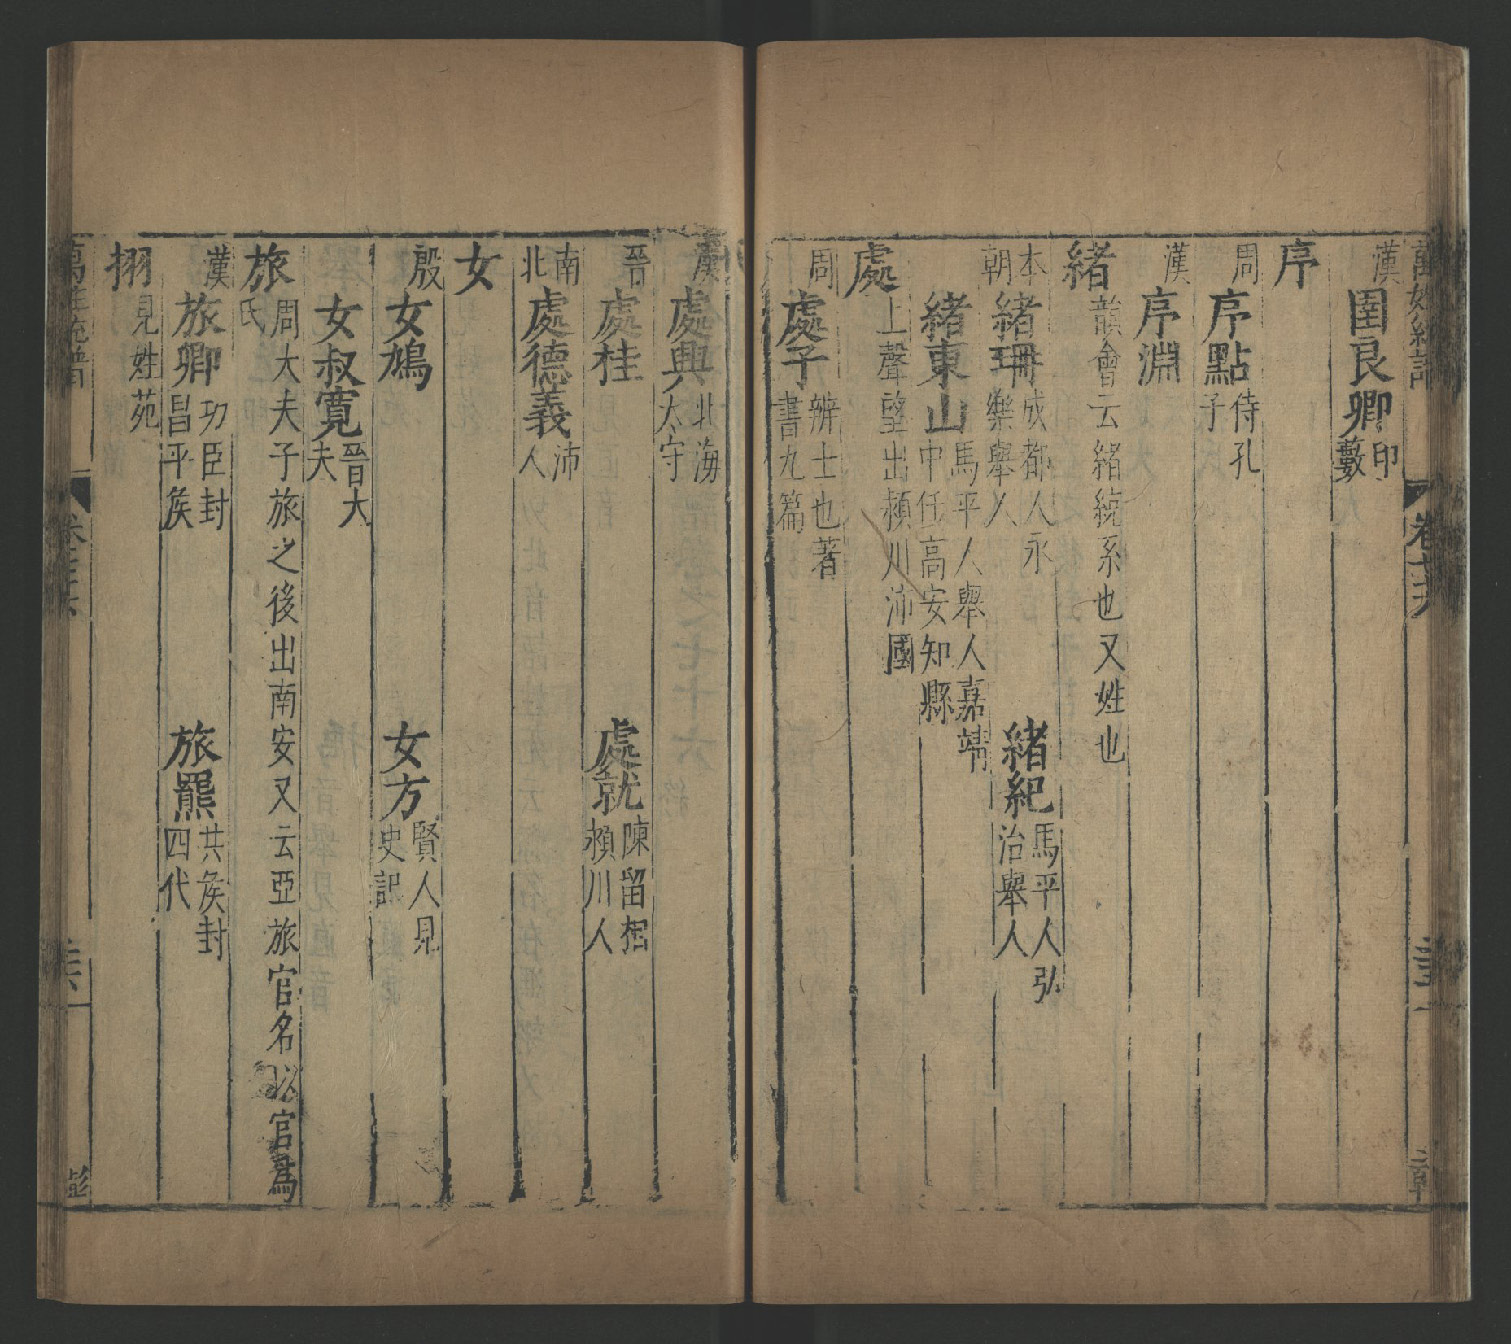 漢
圉良卿印
藪
序
周
序點侍孔
子
漢
序淵
緒
韻會云緒統系也又姓也
本
朝
緒珊成都人永
樂舉人
緒紀馬平人弘
治舉人
緒東山馬平人舉人嘉靖
中任高安知縣
處
上聲望出潁川沛國
周
處子辨士也著
書九篇
漢
處興北海
太守
晉
處桂
處就陳留相
潁川人
南
北
處德義沛
人
女
殷
女鳩
女方賢人見
史記
女叔寬晉大
夫
旅
周大夫子旅之後出南安又云亞旅官名以官為
氏
漢
旅卿功臣封
昌平侯
旅罷共侯封
四代
栩
見姓苑